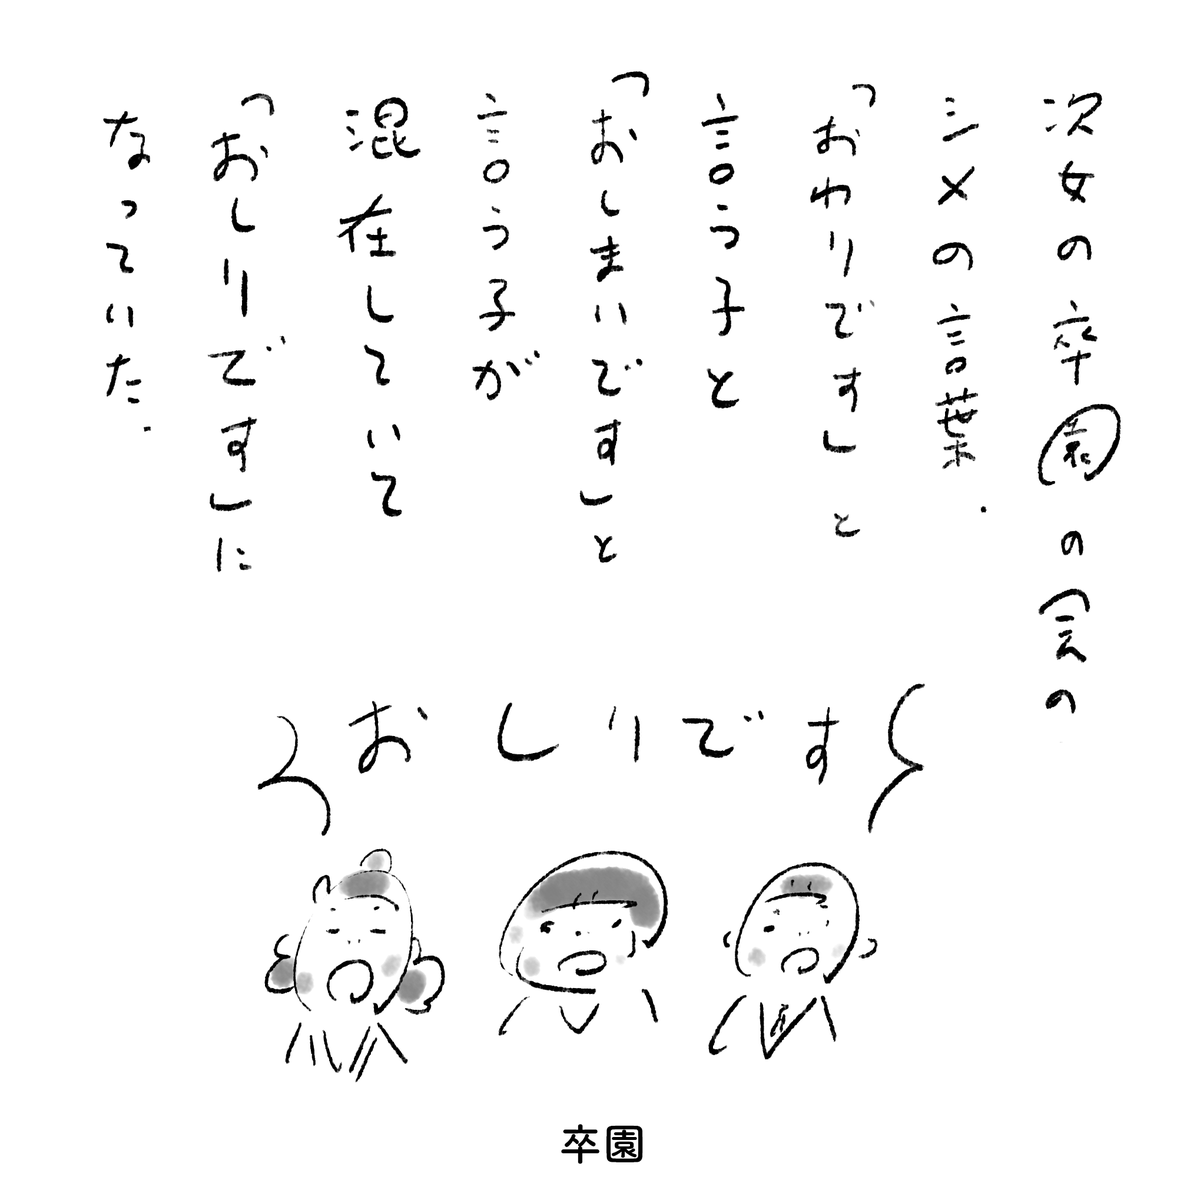 次女の卒園の会の
シメの言葉.
「おわりです」と
言う子と
「おしまいです」と
言う子が
混在していて
「おしりです」に
なっていた.
おしりです
卒園